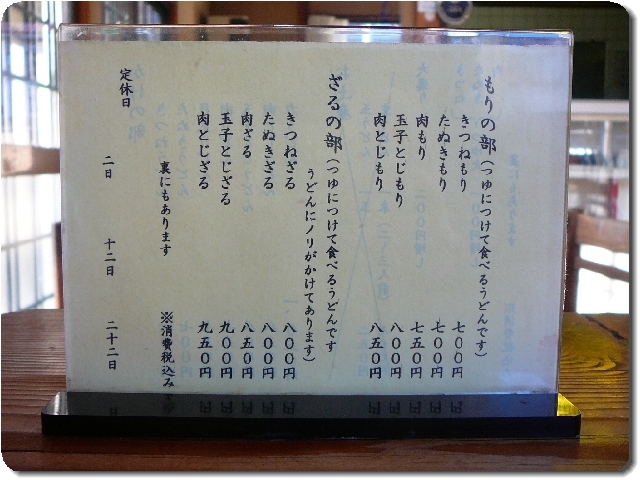 もりの部（つゆにつけて食べるうどんです）
きつねもり 七〇〇円
たぬきもり 七〇〇円
肉もり 七五〇円
玉子とじもり 八〇〇円
肉とじもり 八五〇円
ざるの部（つゆにつけて食べるうどんです
うどんにノリがかけてあります）
きつねざる 八〇〇円
たぬきざる 八〇〇円
肉ざる 八五〇円
玉子とじざる 九〇〇円
肉とじざる 九五〇円
裏にもあります ※消費税込み
定休日 二日 十二日 二十二日